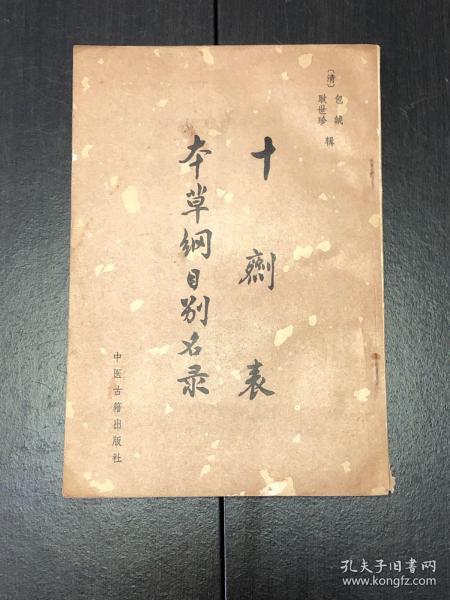 〔清〕包誠
耿世珍 輯
十劑表
本草綱目别名录
中医古籍出版社
孔夫子旧书网
www.kongfz.com